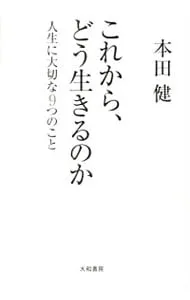 本田 健
これから、
どう生きるのか
人生に大切な9つのこと
大和書房